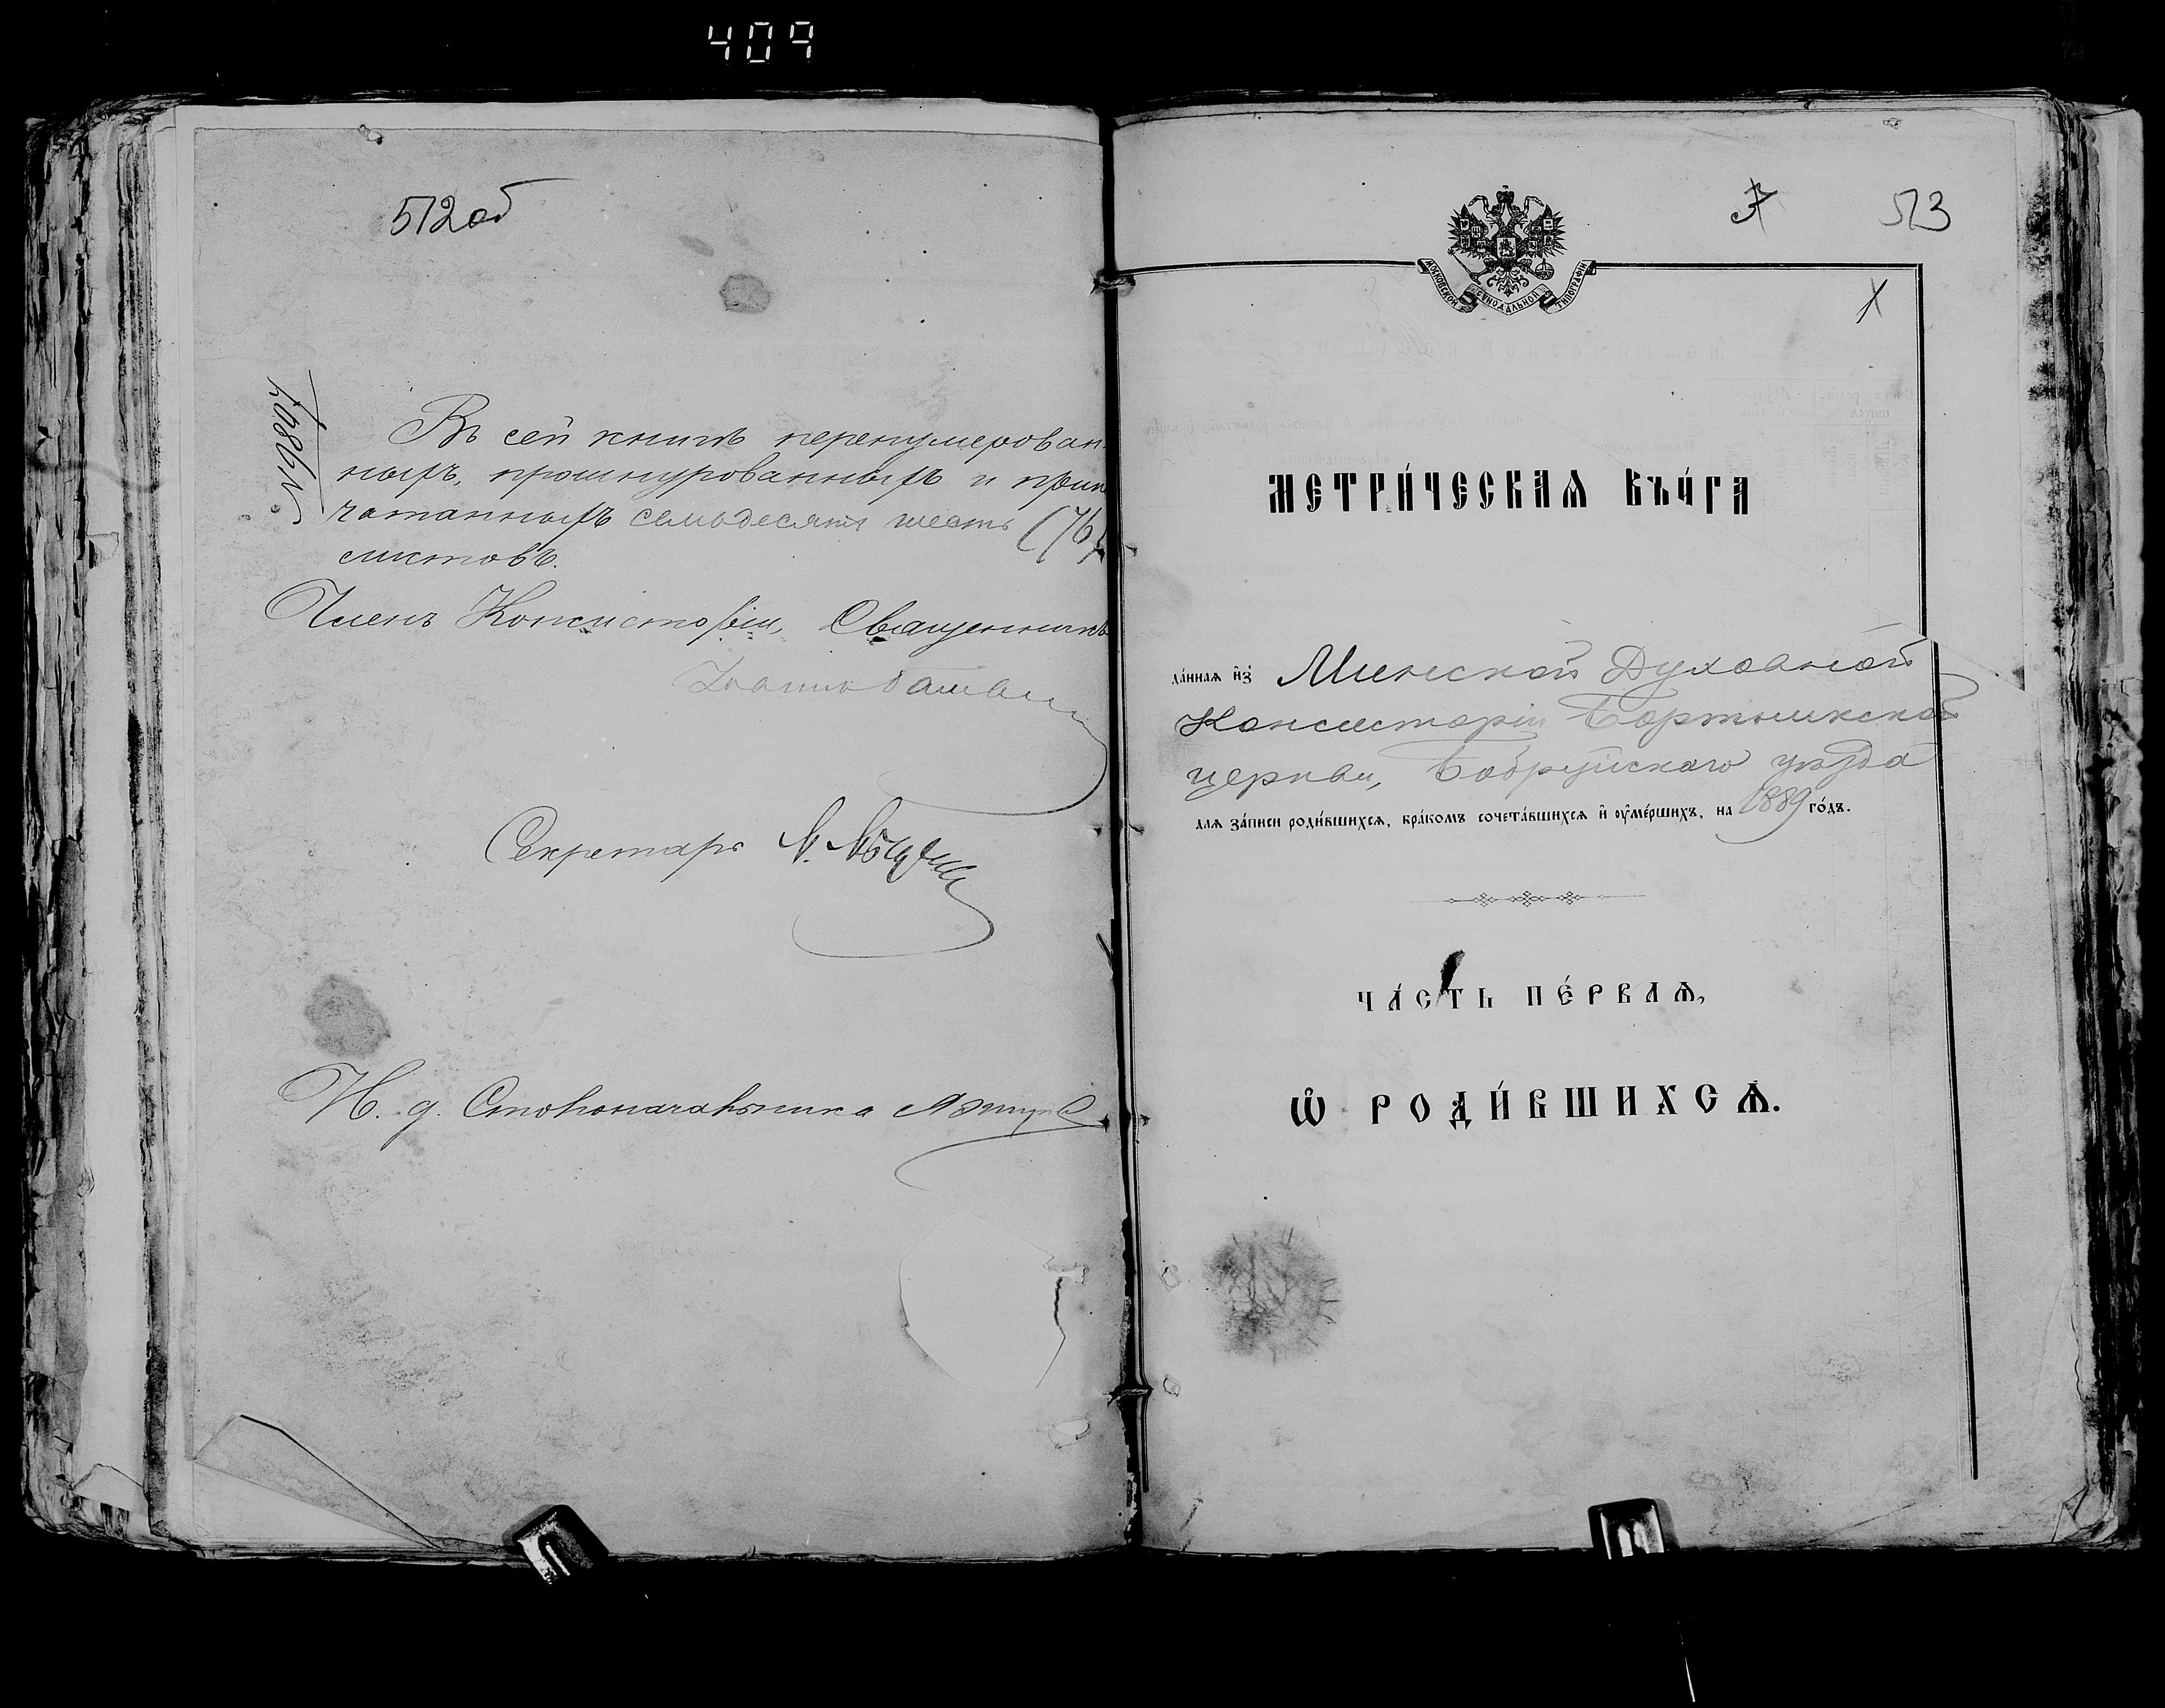 409
512 об
Въ сей книгѣ перенумерован-
ныхъ, прошнурованныхъ и припе
чатанныхъ семьдесятъ шесть (76)
листовъ.
Членъ Консисторіи, Священникъ
Іоаннъ
Секретарь
И. д. Столоначальника
513
МОСКОВСКОЙ СѴНОДАЛЬНОЙ ТИПОГРАФІИ
МЕТРИ́ЧЕСКАѦ КНИ́ГА
да́ннаѧ и҆з̾ Минской Духовной
Консисторіи Бортникской
церкви, Бобруйскаго уѣзда
для за́писи роди́вшихсѧ, бра́комъ сочета́вшихсѧ и҆ ѹ҆ме́ршихъ, на 1889 го́дъ.
ЧА́СТЬ ПЕ́РВАѦ,
Ѡ҆ РОДИ́ВШИХСѦ.